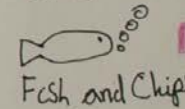 Fish and Chip